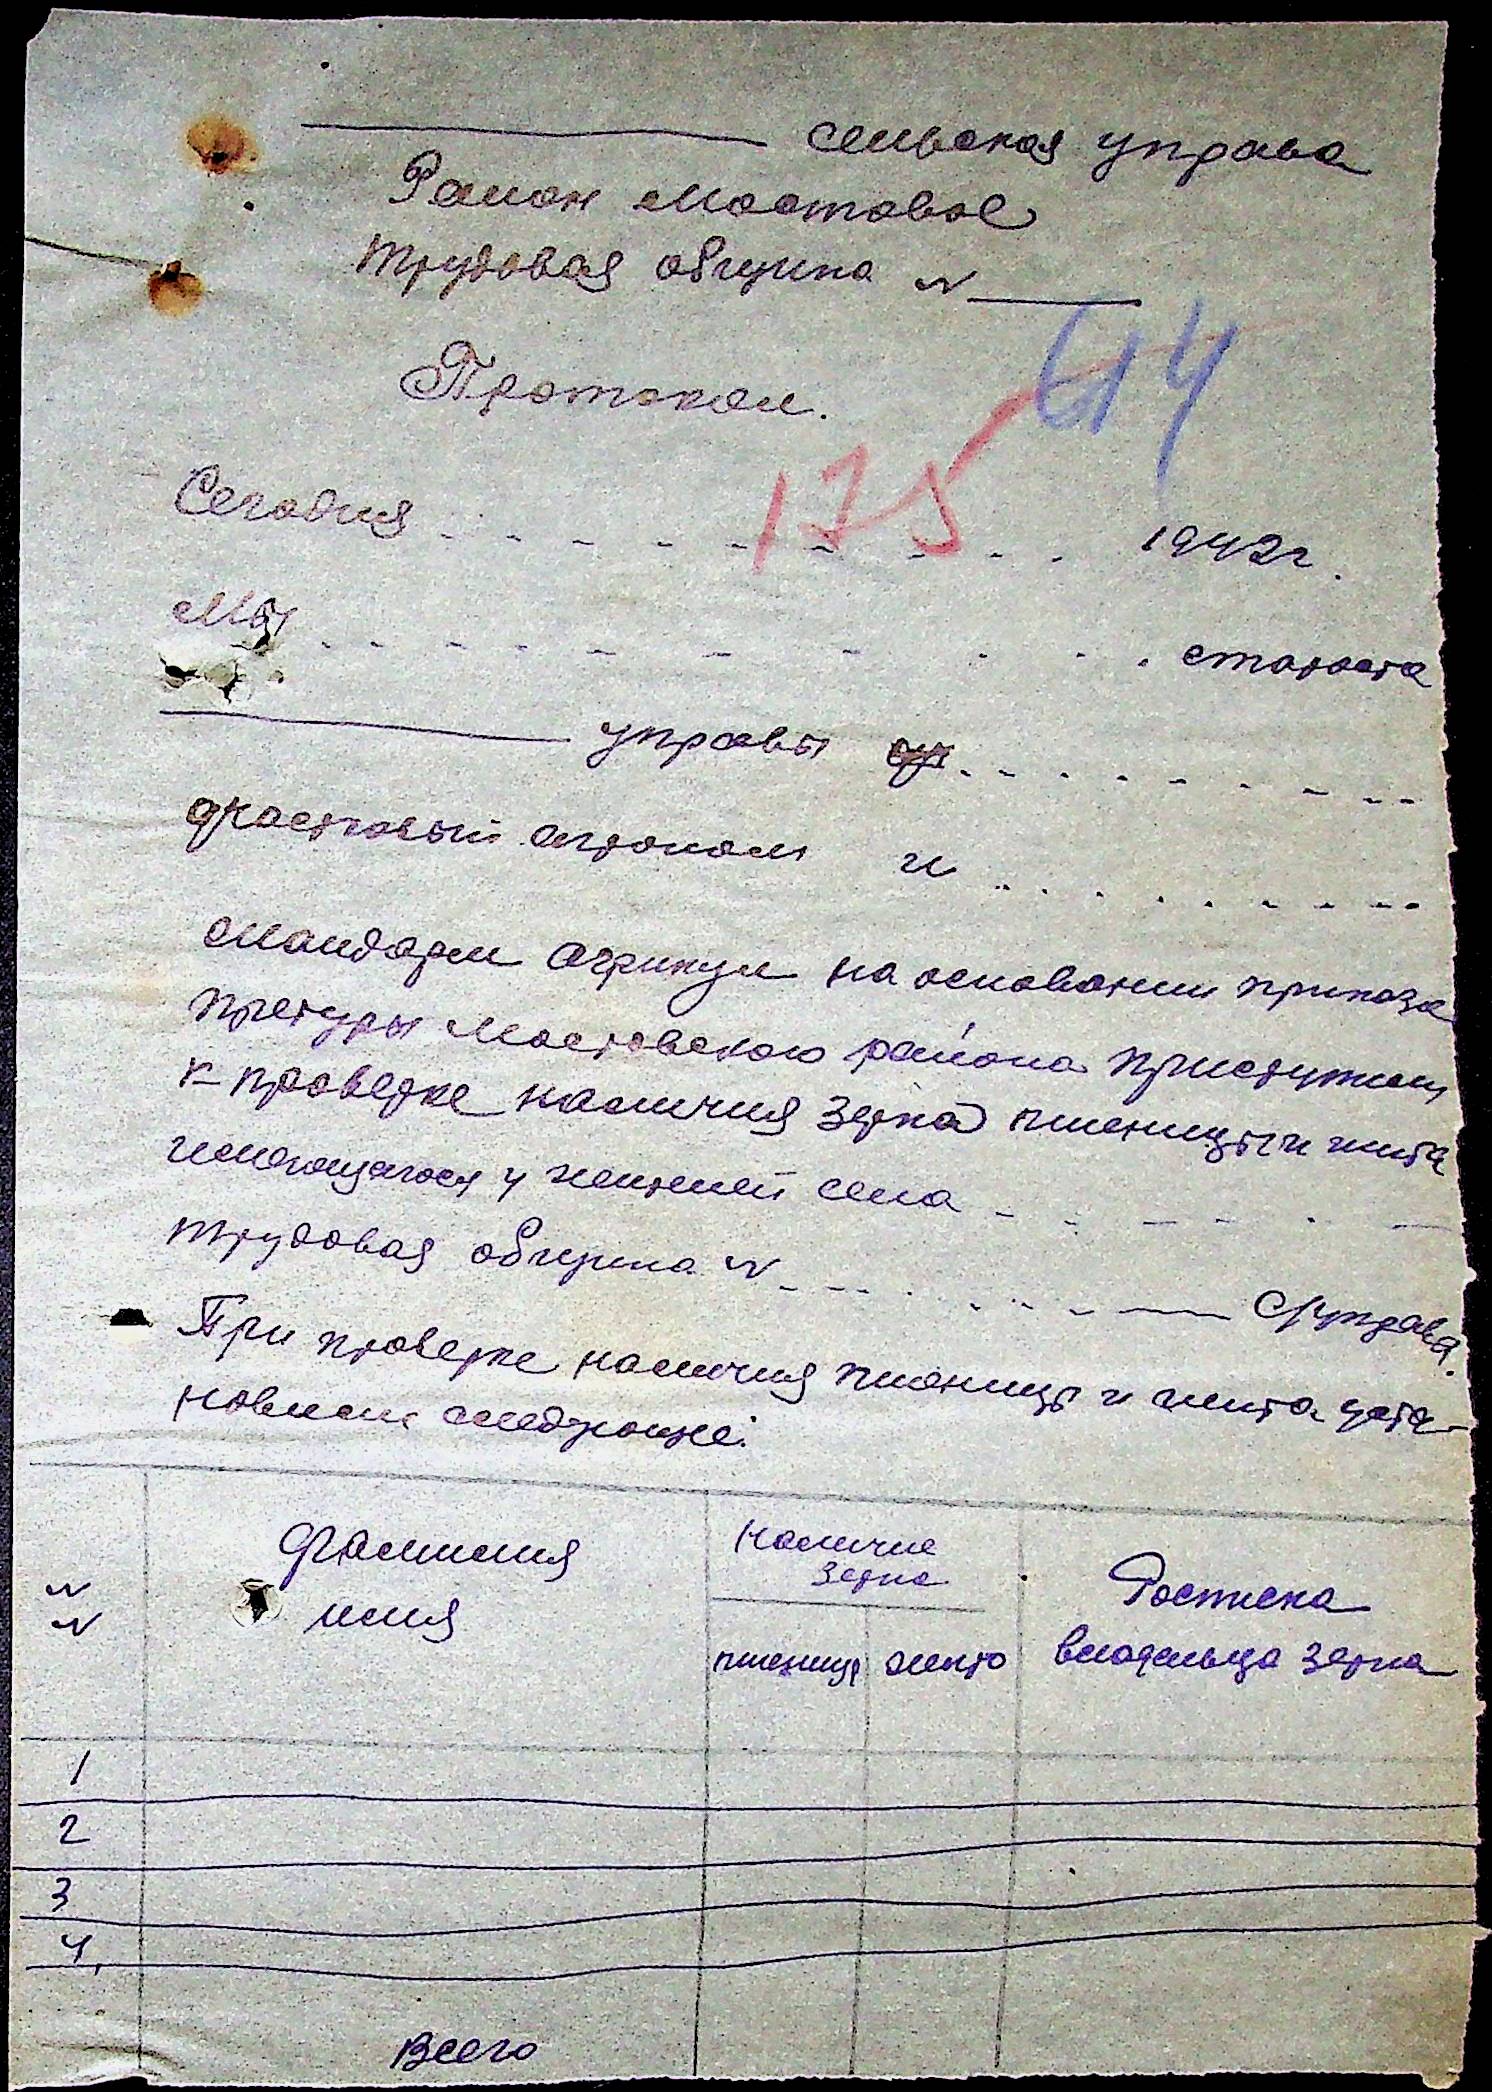 ________ сельская управа
Район Мостовое
Трудовая община N ______
614
Протокол.
175
Сегодня . . . . . . . . . . . 1942г.
Мы . . . . . . . . . . староста
________ управы . . . . . . . . .
участковый агроном и . . . . . . . . .
жандарм агрикул на основании приказа
Претуры Мостовского района приступили
к проверке наличия зерна пшеницы и жита
имеющагося у жителей села . . . . . .
трудовая община N . . . . . . . . С/управа.
При проверке наличия пшеницы и жита уста-
новили следующее:
N
N
Фамилия
имя
Наличие
зерна
пшеница жито
Росписка
владельца зерна
1
2
3
4,
Всего